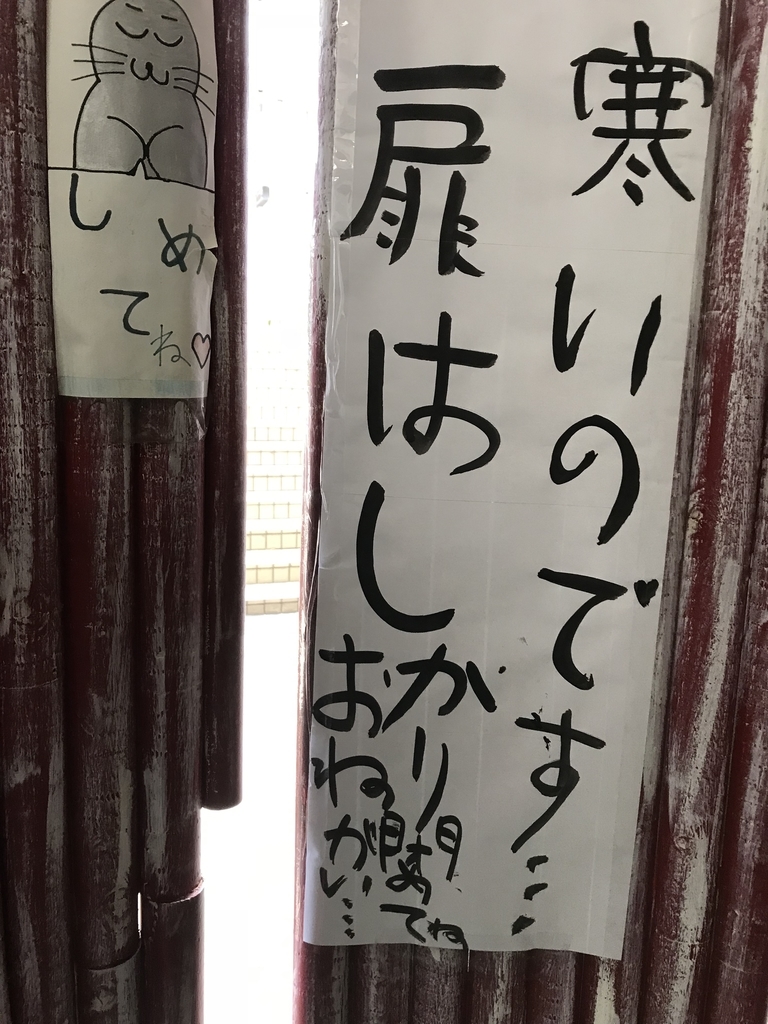 寒いのです…
扉はしかり閉めてね
おねがい…
しめてね♡